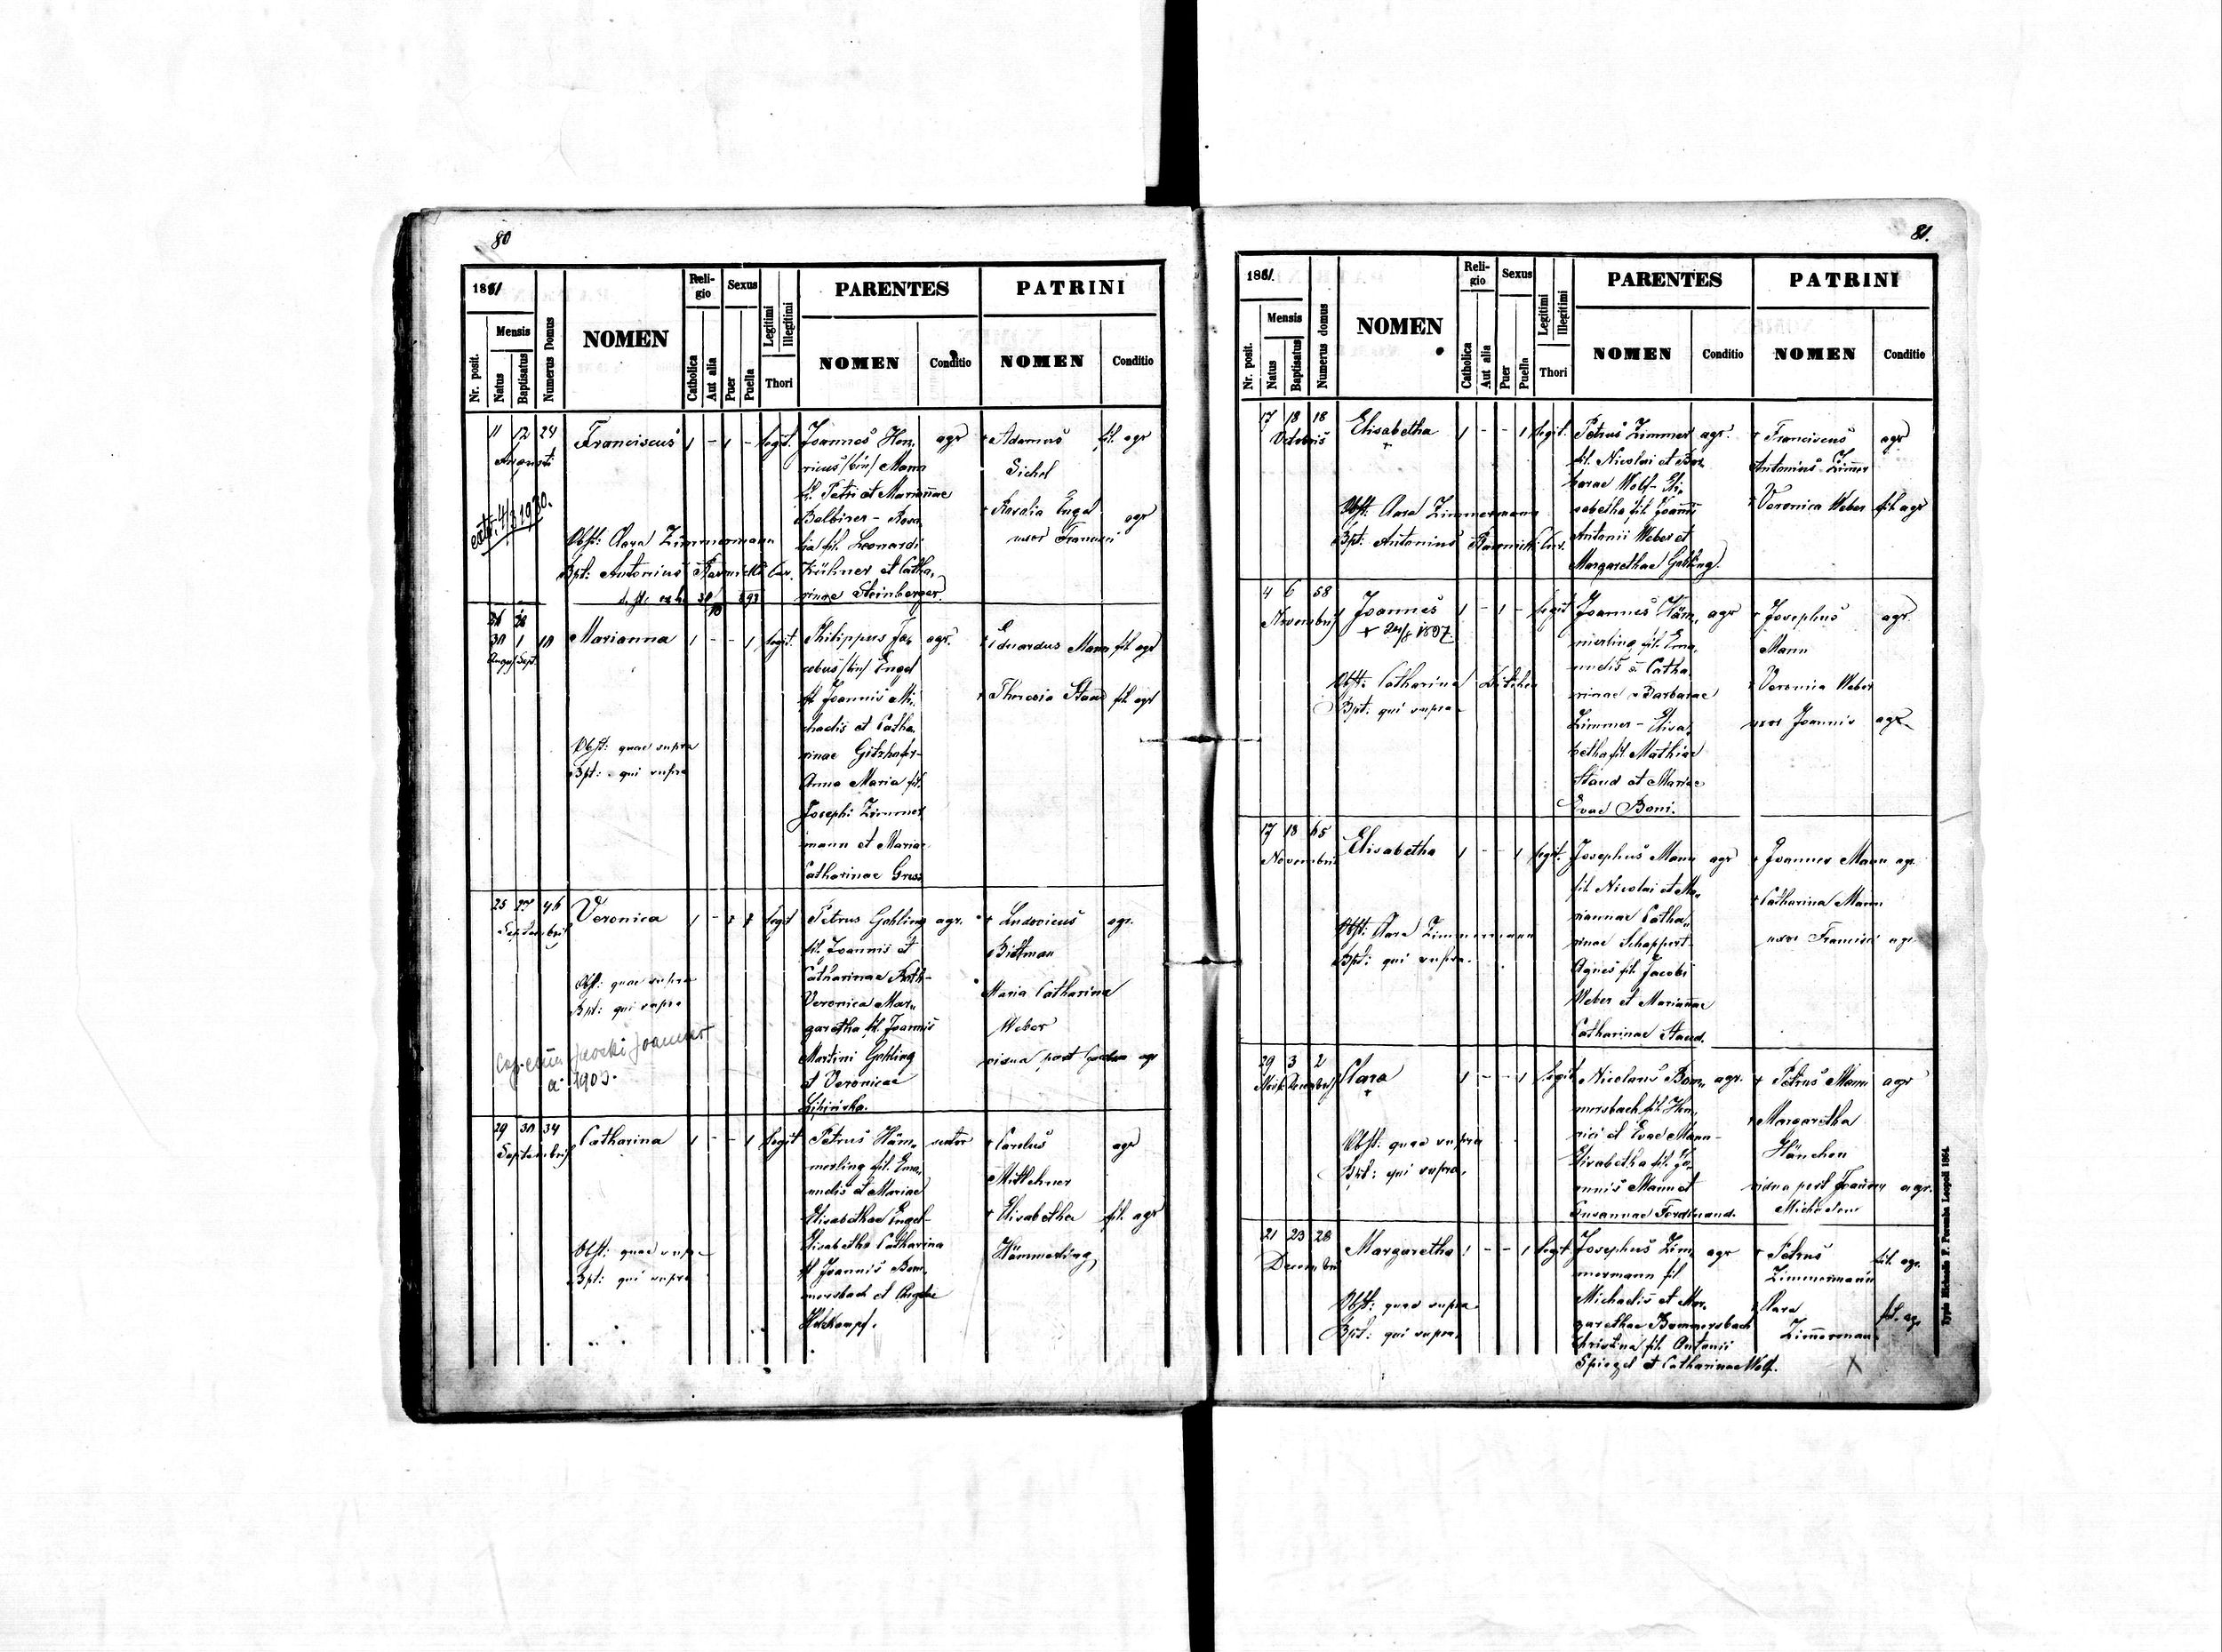 80
1881
Reli-
gio
Sexus
Legitimi
Illegitimi
PARENTES
PATRINI
Mensis
Numerus Domus
NOMEN
Nr. posit.
Natus
Baptisatus
Catholica
Aut alia
Puer
Puella
Thori
NOMEN
Conditio
NOMEN
Conditio
11 12 24 Franciscus 1 - 1 - legit. Joannes Hen, agr Adamus fil. agr
Augusti
ricus /bin/ Mann Sichel
fil. Petri et Mariannae
Balbirer - Rosa, Rosalia Engel agr
extr. 4/3 1930.
Obst: Clara Zimmermann lia fil. Leonardi uxor Francisci
Bpt: Antonius Cur. Kühner et Catha,
31/10 893 rinae Steinberger.
30 1 10 Marianna 1 - - 1 legit. Philippus Ja, agr. Eduardus Mann fil agr
Aug. Sept.
cobus /bin/ Engel
fil Joannis Mi, Theresia Staud fil. agr
chaelis et Catha,
Obst: quae supra rinae
Bpt: qui supra Anna Maria fil.
Josephi Zimmer
mann et Mariae
Catharinae Gress
25 27 46 Veronica 1 - legit Petrus Gohling agr. Ludovicus agr.
Septembris
fil. Joannis et Bittman
Catharinae
Obst: quae supra Veronica Mar, Maria Catharina
Bpt: qui supra garetha fil. Joannis Weber
Joannes Martini Gohling vidua post agr
a. 1903. et Veronicae
29 30 34 Catharina 1 - - 1 legit Petrus Häm, sutor Carolus agr
Septembris
merling fil. Ema, Mittlehner
nuelis et Mariae
Elisabethae Engel - Elisabetha fil. agr
Obst: quae supra Elisabetha Catharina Hämmerling
Bpt: qui supra fil Joannis Bom,
mersbach et
81.
1881.
Reli-
gio
Sexus
Legitimi
Illegitimi
PARENTES
PATRINI
Mensis
Numerus domus
NOMEN
Nr. posit.
Natus
Baptisatus
Catholica
Aut alia
Puer
Puella
Thori
NOMEN
Conditio
NOMEN
Conditio
17 18 18 Elisabetha 1 - - 1 legit. Petrus Zimmer agr. Franciscus agr
Octobris
fil. Nicolai et Bar, Antonius Zimmer
barae Wolf - Eli,
Obst: Clara Zimmermann sabetha fil. Joannis Veronica Weber fil agr
Bpt: Antonius Cur. Antonii Weber et
Margarethae Gohling.
4 6 58 Joannes 1 - 1 - legit Joannes Häm, agr Josephus agr
Novembris + 24/8 1897
merling fil. Ema, Mann
Obst: Catharina nuelis et Catha,
Bpt: qui supra rinae Barbarae Veronica Weber
Zimmer - Elisa, uxor Joannis agr
betha fil Mathiae
Staud et Mariae
Evae Boni.
17 18 65 Elisabetha 1 - - 1 legit. Josephus Mann agr Joannes Mann agr.
Novembris
fil. Nicolai et Ma,
riannae Catha, Catharina Mann
Obst: Clara Zimmermann rinae Schappert uxor Francisci agr
Bpt: qui supra. Agnes fil. Jacobi
Weber et Mariannae
Catharinae Staud.
29 3 2 Clara 1 - - 1 legit Nicolaus Bom, agr. Petrus Mann agr
Decembris
mersbach fil. Hen, Margaretha
Obst: quae supra rici et Evae Mann - Hänchen
Bpt: qui supra. Elisabetha fil. Jo,
annis Mann et vidua post agr.
Susannae Ferdinand. Michaelem
21 23 28 Margaretha 1 - - 1 legit Josephus Zim, agr Petrus fil. agr.
Decembris
mermann fil Zimmermann
Obst: quae supra Michaelis et Mar,
Bpt: qui supra. garethae Bommersbach Clara fil. agr
Christina fil. Antonii Zimmerman
Spiegel et Catharinae Wolf.
X
Typis Michaelis F. Poremba Leopoli 1864.